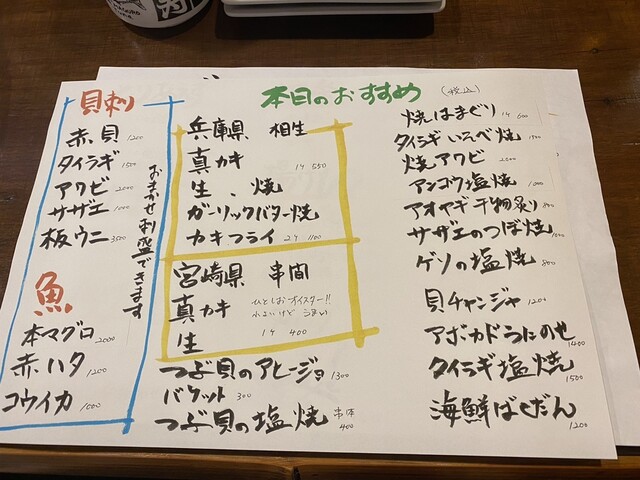 本日のおすすめ
(税込)
貝刺
赤貝 1200
タイラギ 1500
アワビ 2000
サザエ 1000
板ウニ 3500
おまかせ刺盛できます
魚
本マグロ 2000
赤ハタ 1200
コウイカ 1000
兵庫県 相生
真カキ 1ヶ 550
生、焼
ガーリックバター焼
カキフライ 2ヶ 1100
宮崎県 串間
真カキ ひとしおオイスター!!
うまい
生 1ヶ 400
つぶ貝のアヒージョ 1300
バケット 300
つぶ貝の塩焼 串1本 400
焼はまぐり 1ヶ 600
タイラギいそべ焼
焼アワビ 2000
アンコウ塩焼 1000
アオヤギ干物炙り
サザエのつぼ焼
ゲソの塩焼 800
貝チャンジャ 1200
アボカドうにのせ 1400
タイラギ塩焼 1500
海鮮ばくだん 1200